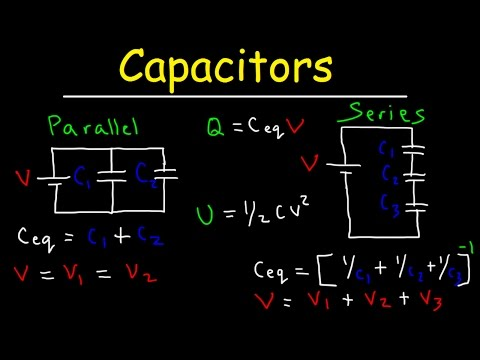 Capacitors
Parallel
V C₁ C₂
Ceq = C₁ + C₂
V = V₁ = V₂
Q = Ceq V
U = 1/2 C V²
Series
V
C₁
C₂
C₃
Ceq = [1/C₁ + 1/C₂ + 1/C₃]⁻¹
V = V₁ + V₂ + V₃